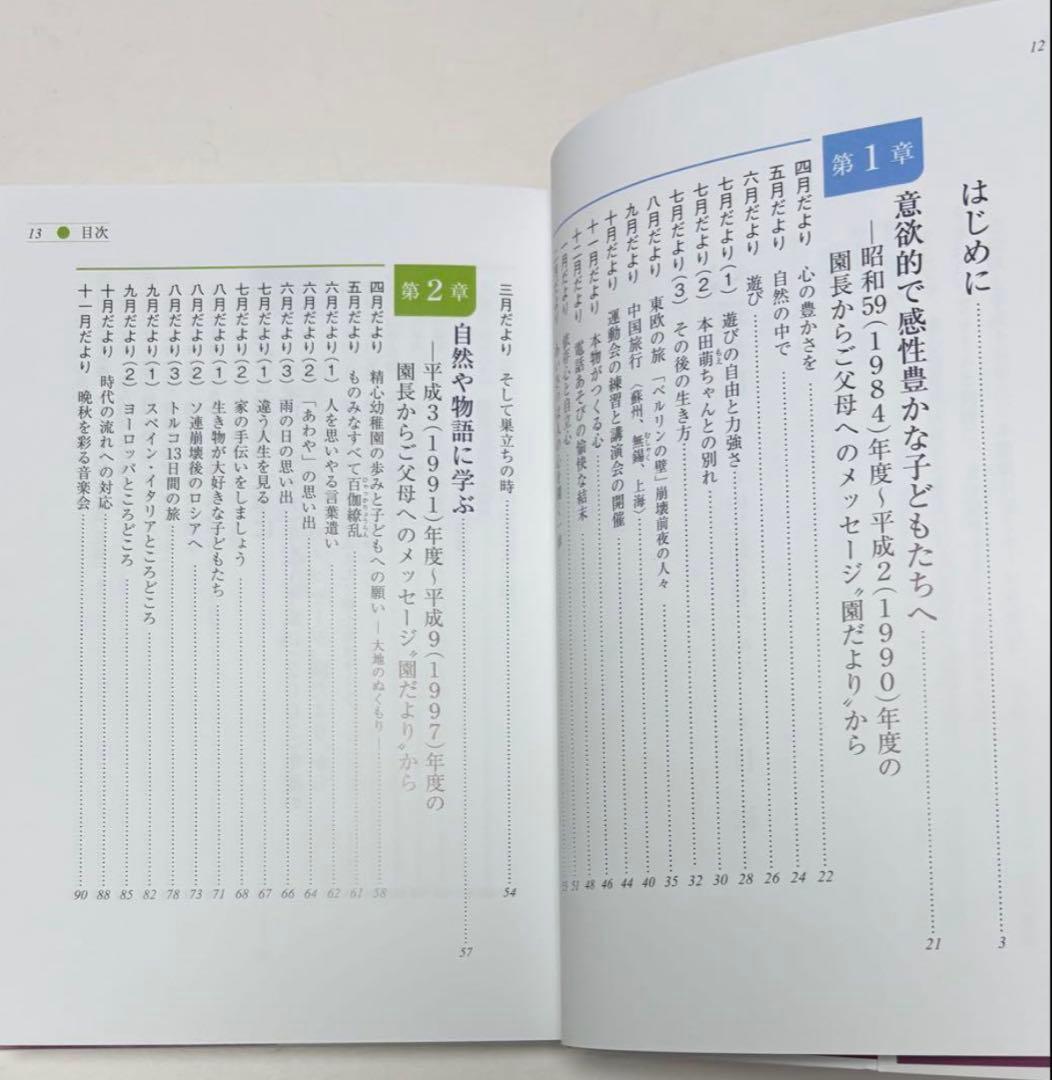 12
はじめに 3
第1章 意欲的で感性豊かな子どもたちへ 21
―昭和59(1984)年度～平成2(1990)年度の
園長からご父母へのメッセージ〝園だより〟から
四月だより 心の豊かさを 22
五月だより 自然の中で 24
六月だより 遊び 26
七月だより(1) 遊びの自由と力強さ 28
七月だより(2) 本田萌ちゃんとの別れ 30
もえ
七月だより(3) その後の生き方 32
八月だより 東欧の旅 「ベルリンの壁」崩壊前夜の人々 35
九月だより 中国旅行〈蘇州、無錫、上海〉 40
むしゃく
十月だより 運動会の練習と講演会の開催 44
十一月だより 本物がつくる心 46
十二月だより 電話あそびの愉快な結末 48
一月だより 心と自立心 51
三月だより そして巣立ちの時 54
第2章 自然や物語に学ぶ 57
―平成3(1991)年度～平成9(1997)年度の
園長からご父母へのメッセージ〝園だより〟から
四月だより 精心幼稚園の歩みと子どもへの願い ―大地のぬくもり― 58
五月だより ものみなすべて百伽繚乱 61
ひゃっかりょうらん
六月だより(1) 人を思いやる言葉遣い 62
六月だより(2) 「あわや」の思い出 64
六月だより(3) 雨の日の思い出 66
七月だより(1) 違う人生を見る 67
七月だより(2) 家の手伝いをしましょう 68
八月だより(1) 生き物が大好きな子どもたち 71
八月だより(2) ソ連崩壊後のロシアへ 73
八月だより(3) トルコ13日間の旅 78
九月だより(1) スペイン・イタリアところどころ 82
九月だより(2) ヨーロッパところどころ 85
十月だより 時代の流れへの対応 88
十一月だより 晩秋を彩る音楽会 90
13 ● 目次